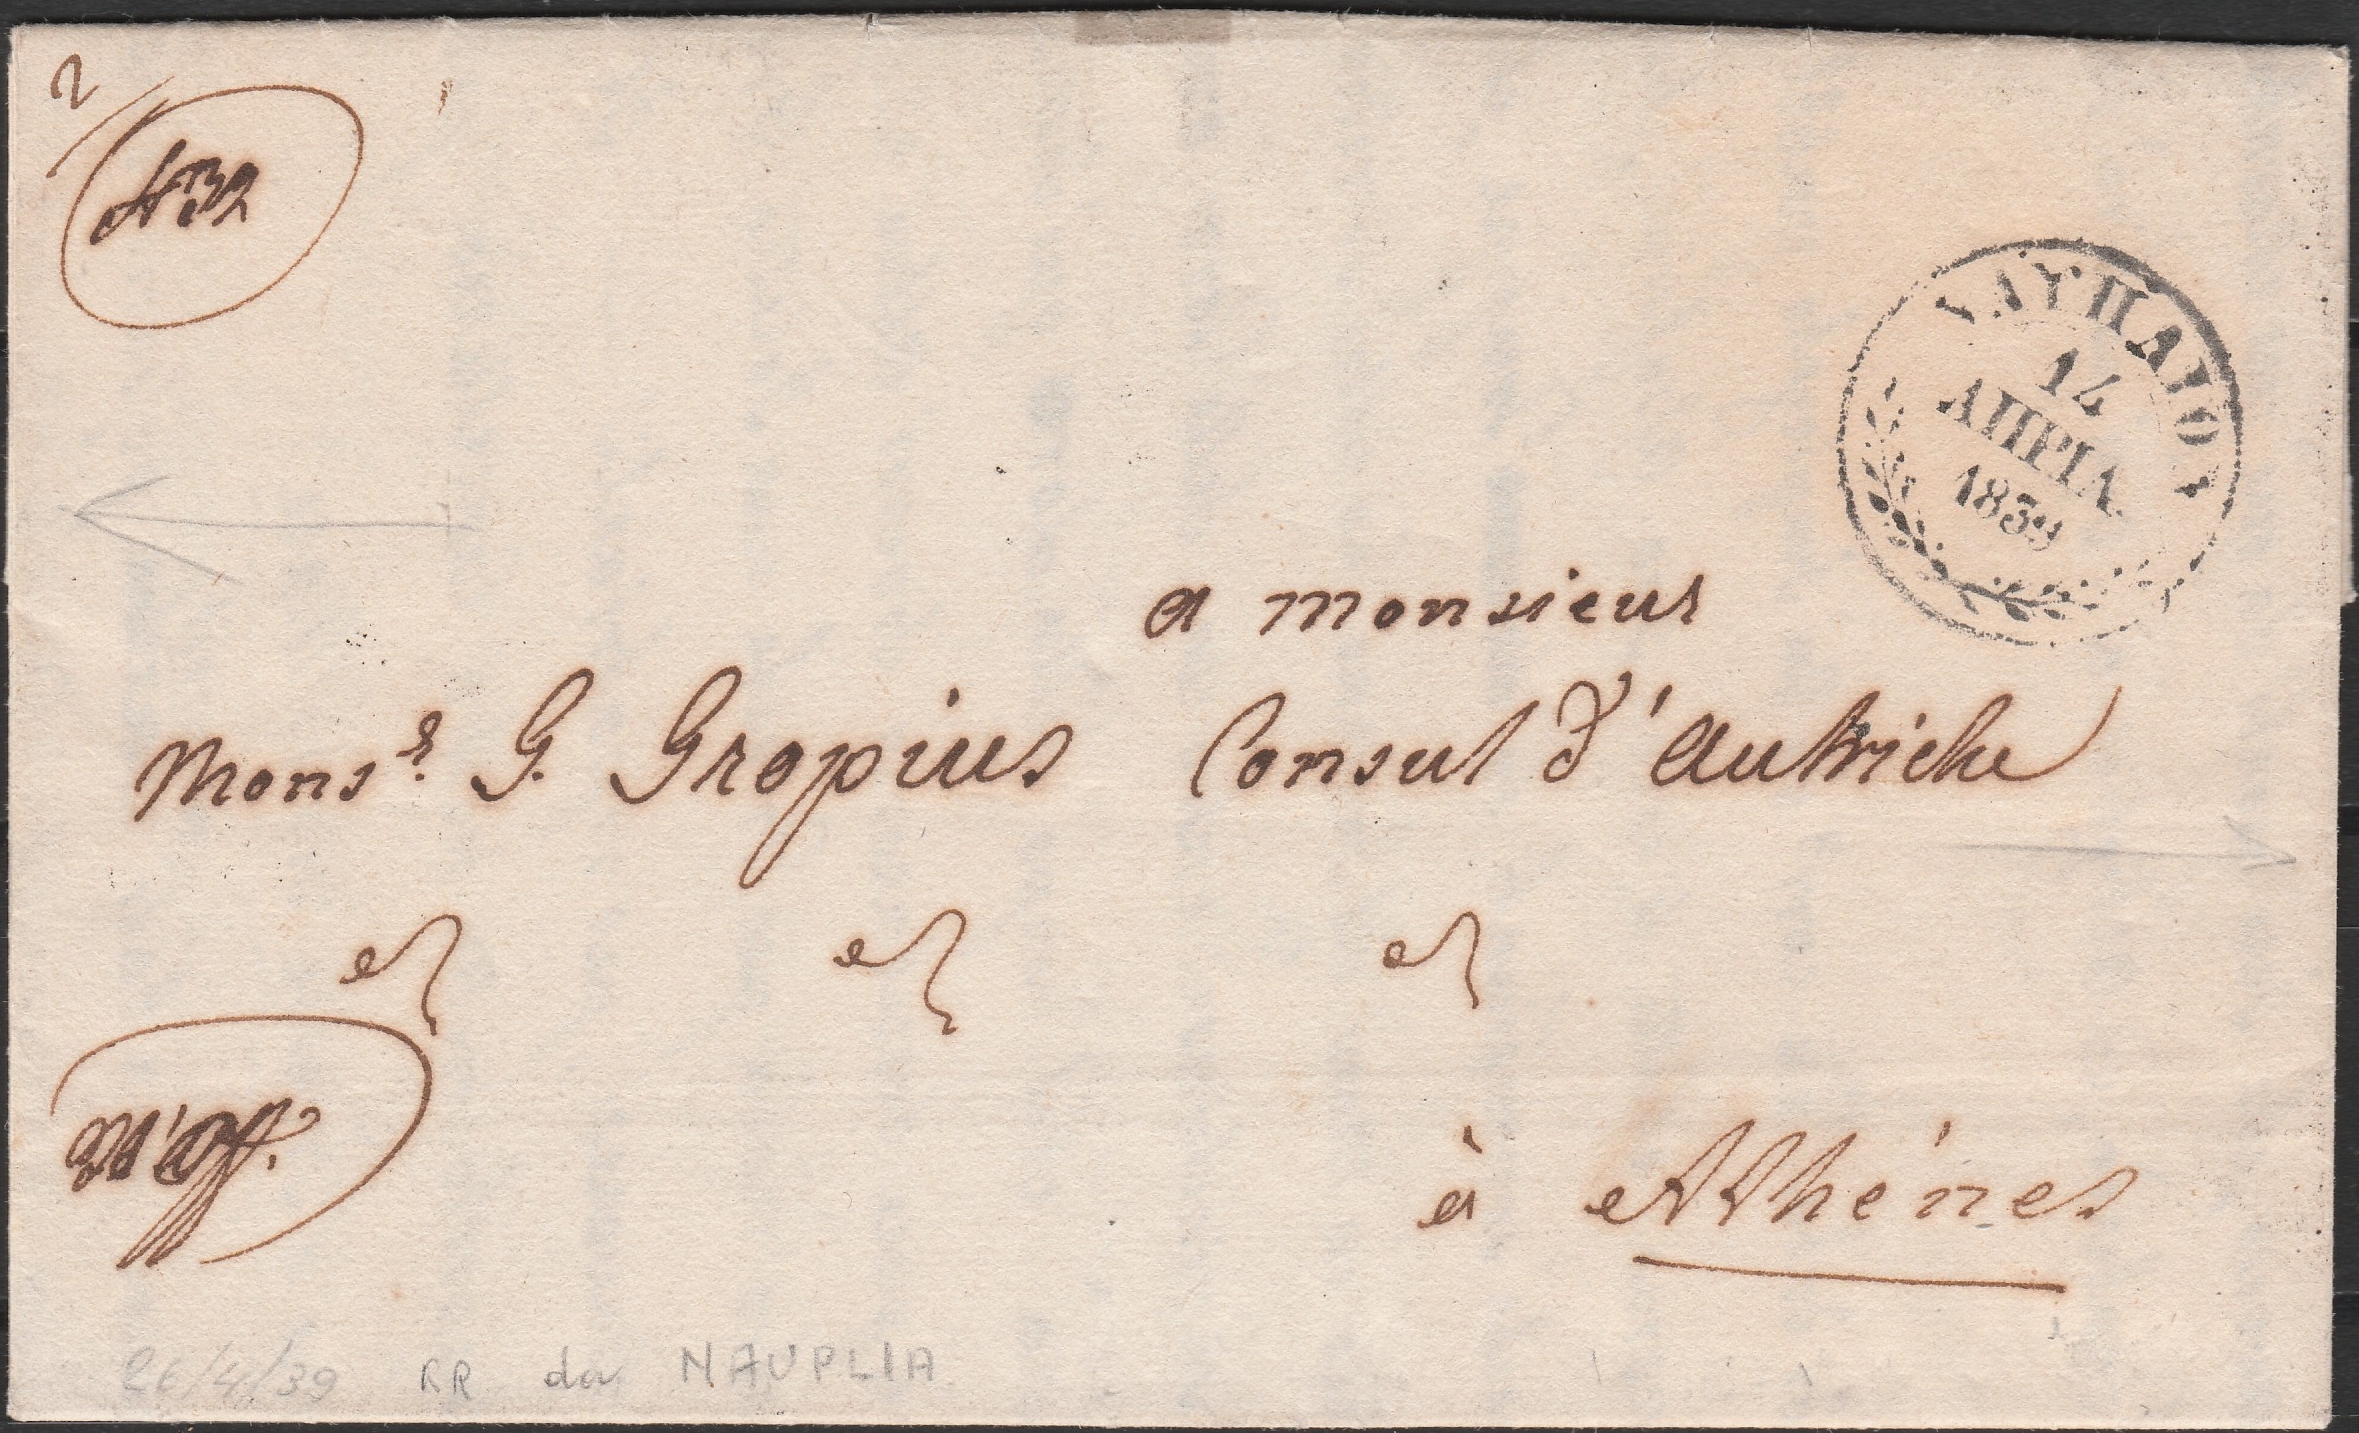 2
ΝΑΥΠΛΙΟΥ
14
ΑΠΡΙΛ.
1839
a monsieur
Mons.r G. Gropius Consul d'autriche
à Athénes
26/4/39 RR da NAUPLIA